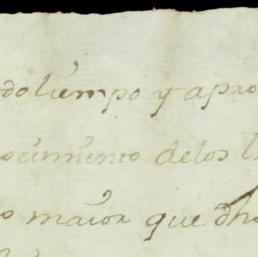 do tiempo y apro
ocimiento delos
o maior que dho